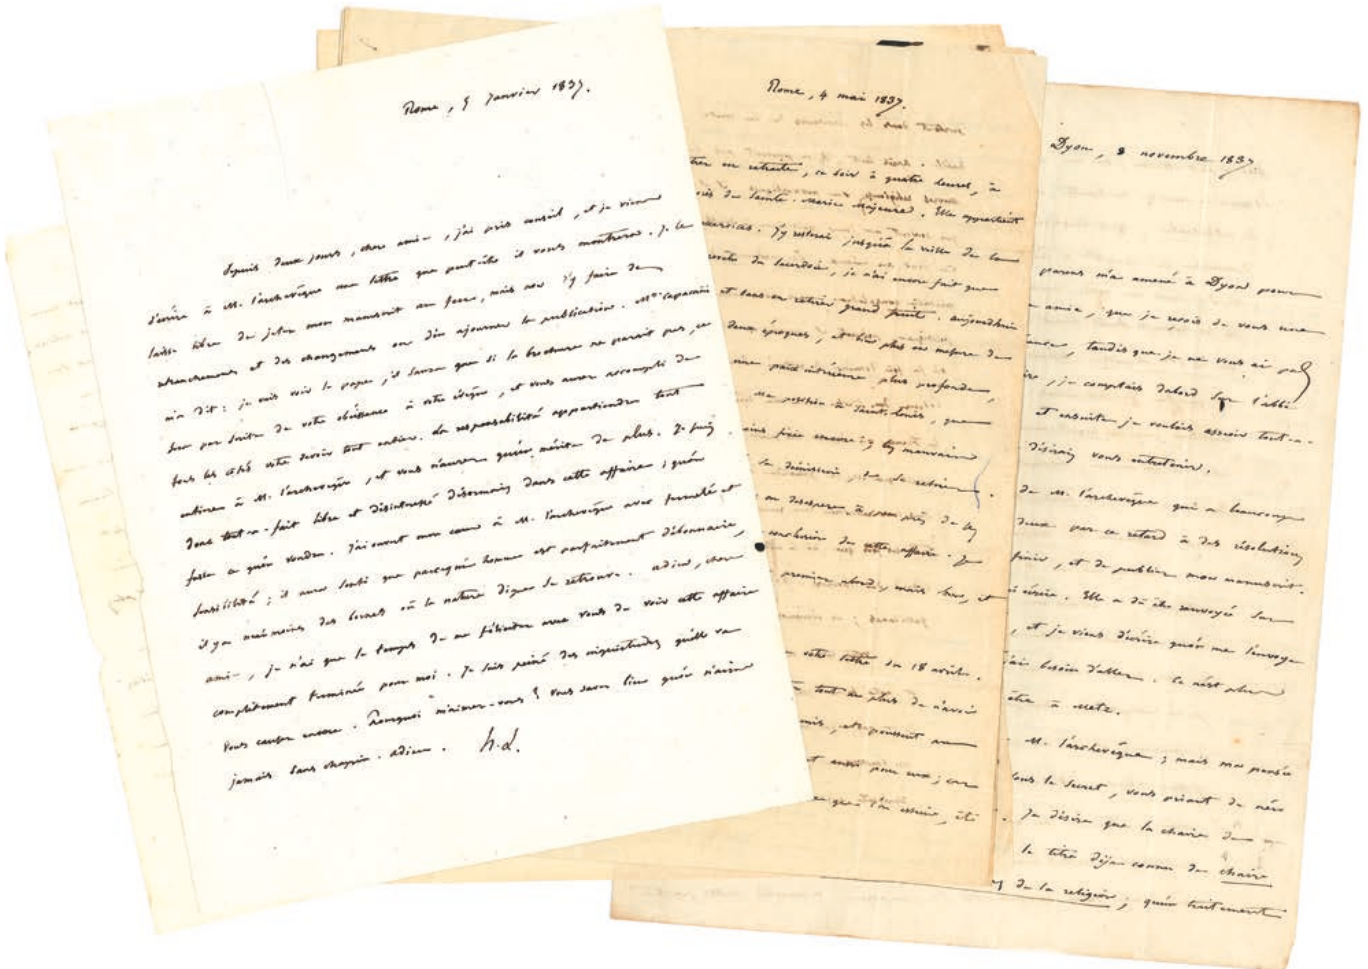 Rome, 5 janvier 1837.
depuis deux jours, cher ami, j'ai pris conseil, et je viens
d'écrire à M. l'archevêque une lettre que peut-être il vous montrera. je le
laisse libre de jeter mon manuscrit au feu, mais non d'y faire de
retranchemens et des changemens ou d'en ajourner la publication. Mgr Capaccini
m'a dit : je vais voir le pape, il saura que si la brochure ne paroit pas, ce
sera par suite de votre obéissance à votre évêque, et vous aurez accompli de
tous les côtés votre devoir tout entier. La responsabilité appartiendra tout
entière à M. l'archevêque, et vous n'aurez qu'un mérite de plus. je suis
donc tout-a-fait libre et désintéressé désormais dans cette affaire ; qu'on
fasse ce qu'on voudra. j'ai ouvert mon cœur à M. l'archevêque avec fermeté et
sensibilité ; il aura senti que parcequ'un homme est parfaitement débonnaire,
il y a néanmoins des bornes où la nature digne se retrouve. adieu, cher
ami, je n'ai que le temps de me féliciter avec vous de voir cette affaire
complètement terminée pour moi. Je suis peiné des inquiétudes qu'elle va
vous causer encore. Pourquoi m'aimez-vous ? vous savez bien qu'on n'aime
jamais sans chagrin. adieu. h.L.
Rome, 4 mai 1837.
en retraite, ce soir à quatre heures, à
de Sainte-Marie Majeure. Elle appartient
exercices. J'y resterai jusqu'à la veille de la
du sacerdoce, je n'ai encore fait que
et sans en retirer grand fruit. aujourdhui
deux époques, et bien plus en mesure de
une paix intérieure plus profonde,
Ma position à Saint-Louis, que
fixée encore ; les mauvais
la démission, de se retirer.
on désespère à peu près de les
conclusion de cette affaire. Je
premier abord, mais bon, et
votre lettre du 18 avril.
tout au plus de n'avoir
et poussent au
aussi pour eux ; car
que l'on essuie, été
Dyon, 8 novembre 1837
parens m'a amené à Dyon pour
amie, que je reçois de vous une
tandis que je ne vous ai pas
je comptais d'abord sur l'abbé
et ensuite je voulois asseoir tout-a-
désirais vous entretenir.
de M. l'archevêque qui a beaucoup
deux par ce retard à des résolutions
finir, et de publier mon manuscrit.
écrire. Elle a dû être renvoyée sur
et je viens d'écrire qu'on me l'envoye
j'ai besoin d'aller. Ce n'est plus
être à Metz.
M. l'archevêque ; mais ma pensée
sous le secret, vous priant de n'en
Je désire que la chaire de
le titre déja connu de chaire
de la religion, qu'un traitement